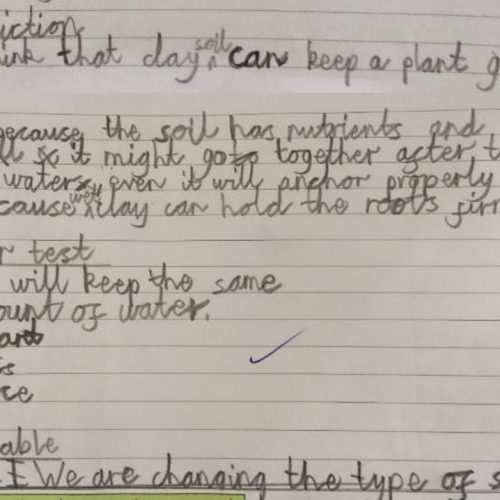 iction
ink that clay soil can keep a plant g
because the soil has nutrients and
ll so it might go to together after t
water even it will anchor properly
cause wet clay can hold the roots firm
r test
will keep the same
ount of water.
s
ce
able
I We are changing the type of s